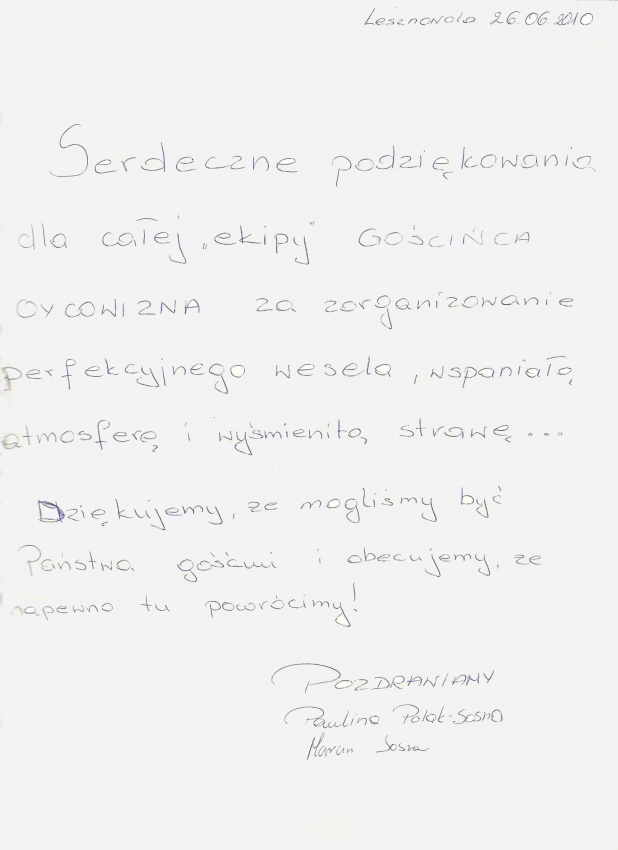 Lesznowola 26.06.2010
Serdeczne podziękowania
dla całej „ekipy” GOŚCIŃCA
OYCOWIZNA za zorganizowanie
perfekcyjnego wesela, wspaniałą
atmosferę i wyśmienitą strawę...
Dziękujemy, że mogliśmy być
Państwa gośćmi i obiecujemy, że
napewno tu powrócimy!
POZDRAWIAMY
Paulina Polak-Sosna
Marcin Sosna